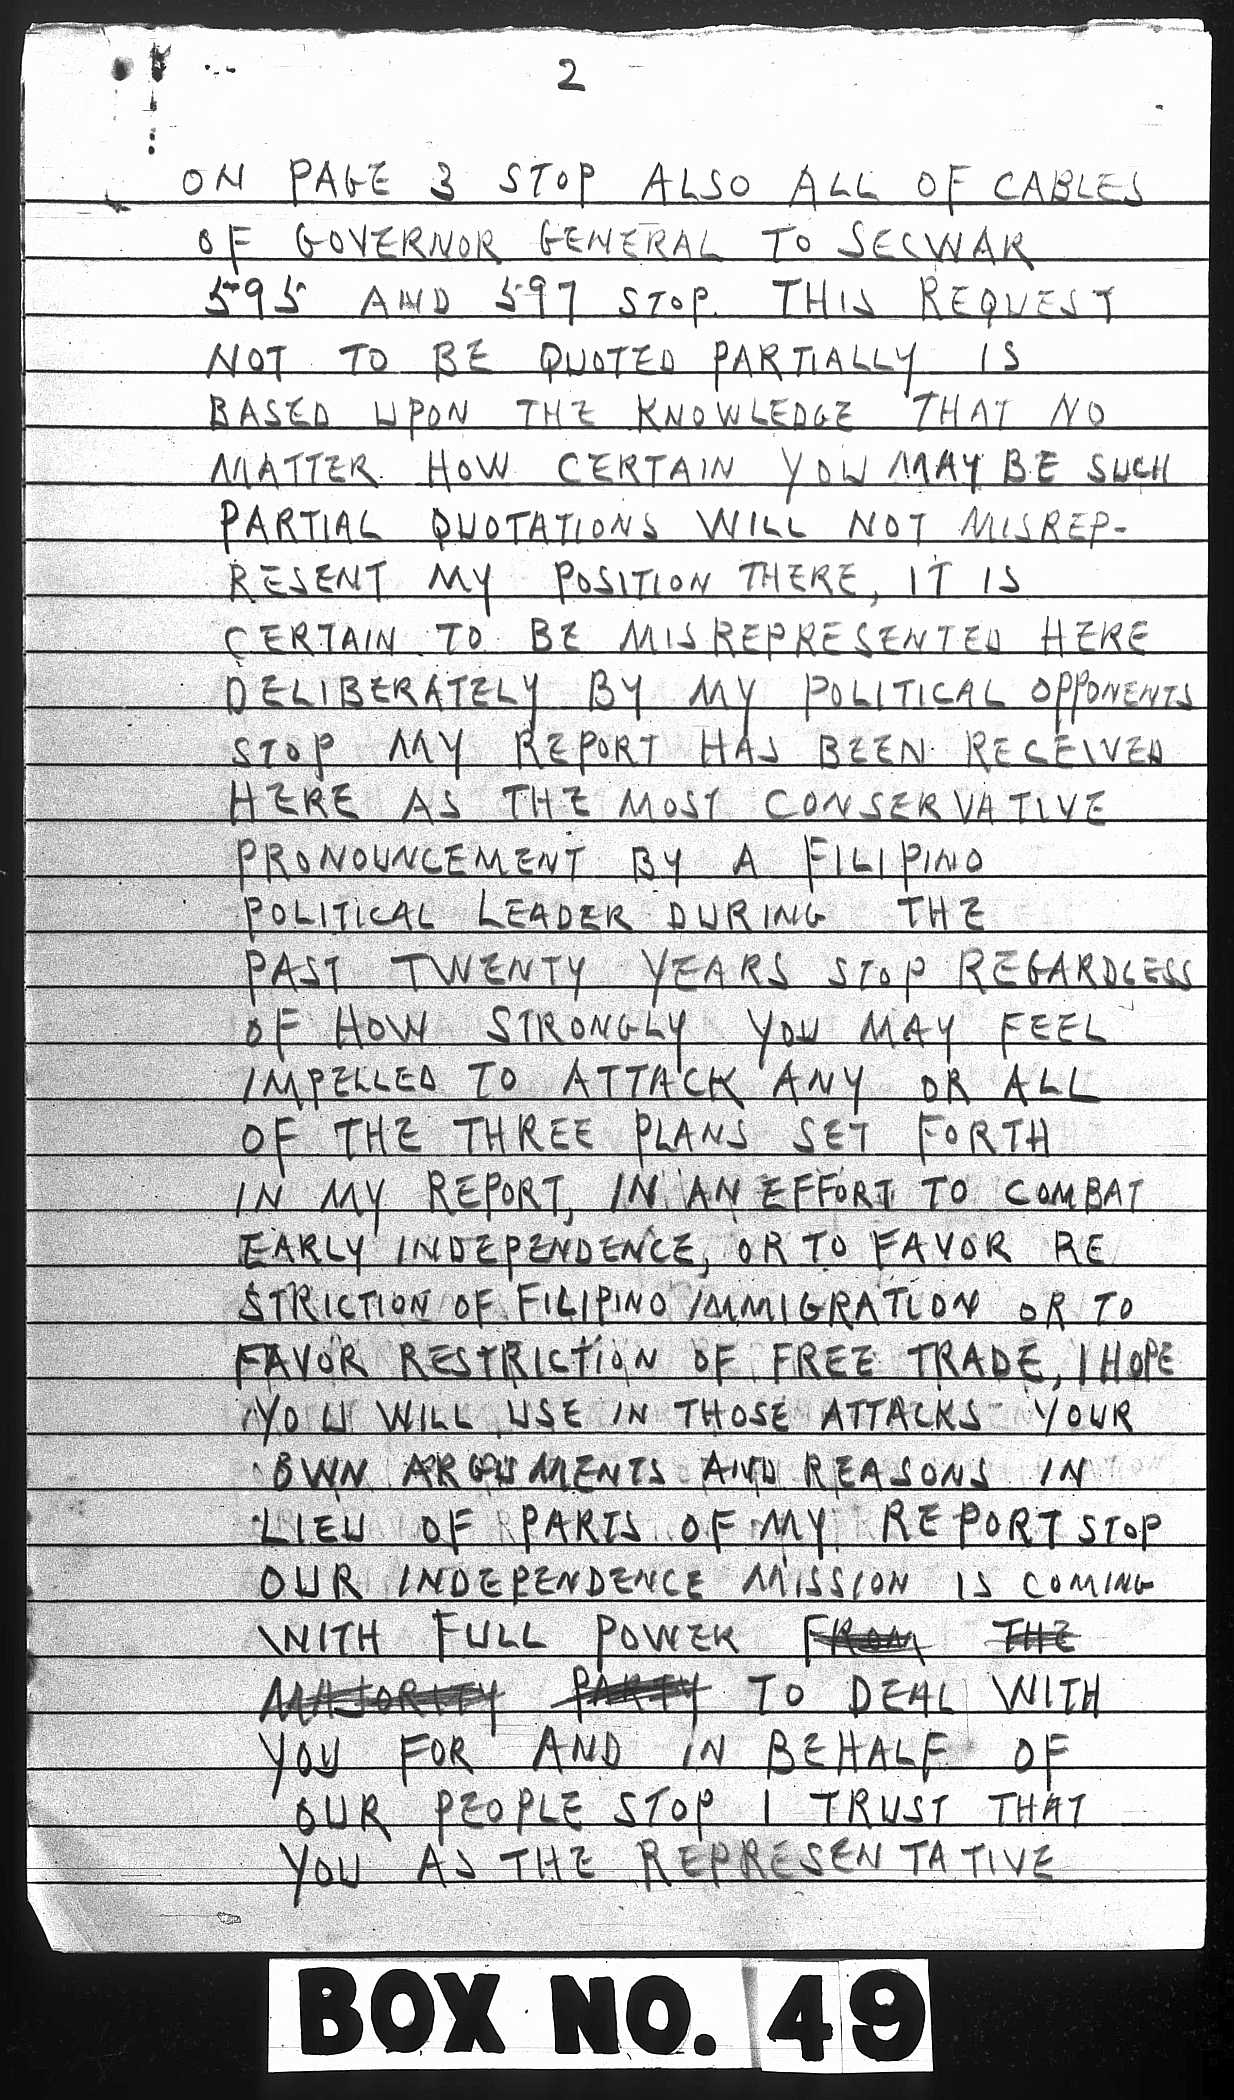 2
ON PAGE 3 STOP ALSO ALL OF CABLES
OF GOVERNOR GENERAL TO SECWAR
595 AND 597 STOP. THIS REQUEST
NOT TO BE QUOTED PARTIALLY IS
BASED UPON THE KNOWLEDGE THAT NO
MATTER HOW CERTAIN YOU MAY BE SUCH
PARTIAL QUOTATIONS WILL NOT MISREP-
RESENT MY POSITION THERE, IT IS
CERTAIN TO BE MISREPRESENTED HERE
DELIBERATELY BY MY POLITICAL OPPONENTS
STOP MY REPORT HAS BEEN RECEIVED
HERE AS THE MOST CONSERVATIVE
PRONOUNCEMENT BY A FILIPINO
POLITICAL LEADER DURING THE
PAST TWENTY YEARS STOP REGARDLESS
OF HOW STRONGLY YOU MAY FEEL
IMPELLED TO ATTACK ANY OR ALL
OF THE THREE PLANS SET FORTH
IN MY REPORT, IN AN EFFORT TO COMBAT
EARLY INDEPENDENCE, OR TO FAVOR RE
STRICTION OF FILIPINO IMMIGRATION OR TO
FAVOR RESTRICTION OF FREE TRADE, I HOPE
YOU WILL USE IN THOSE ATTACKS YOUR
OWN ARGUMENTS AND REASONS IN
LIEU OF PARTS OF MY REPORT STOP
OUR INDEPENDENCE MISSION IS COMING
WITH FULL POWER FROM THE
MAJORITY PARTY TO DEAL WITH
YOU FOR AND IN BEHALF OF
OUR PEOPLE STOP I TRUST THAT
YOU AS THE REPRESENTATIVE
BOX NO. 49